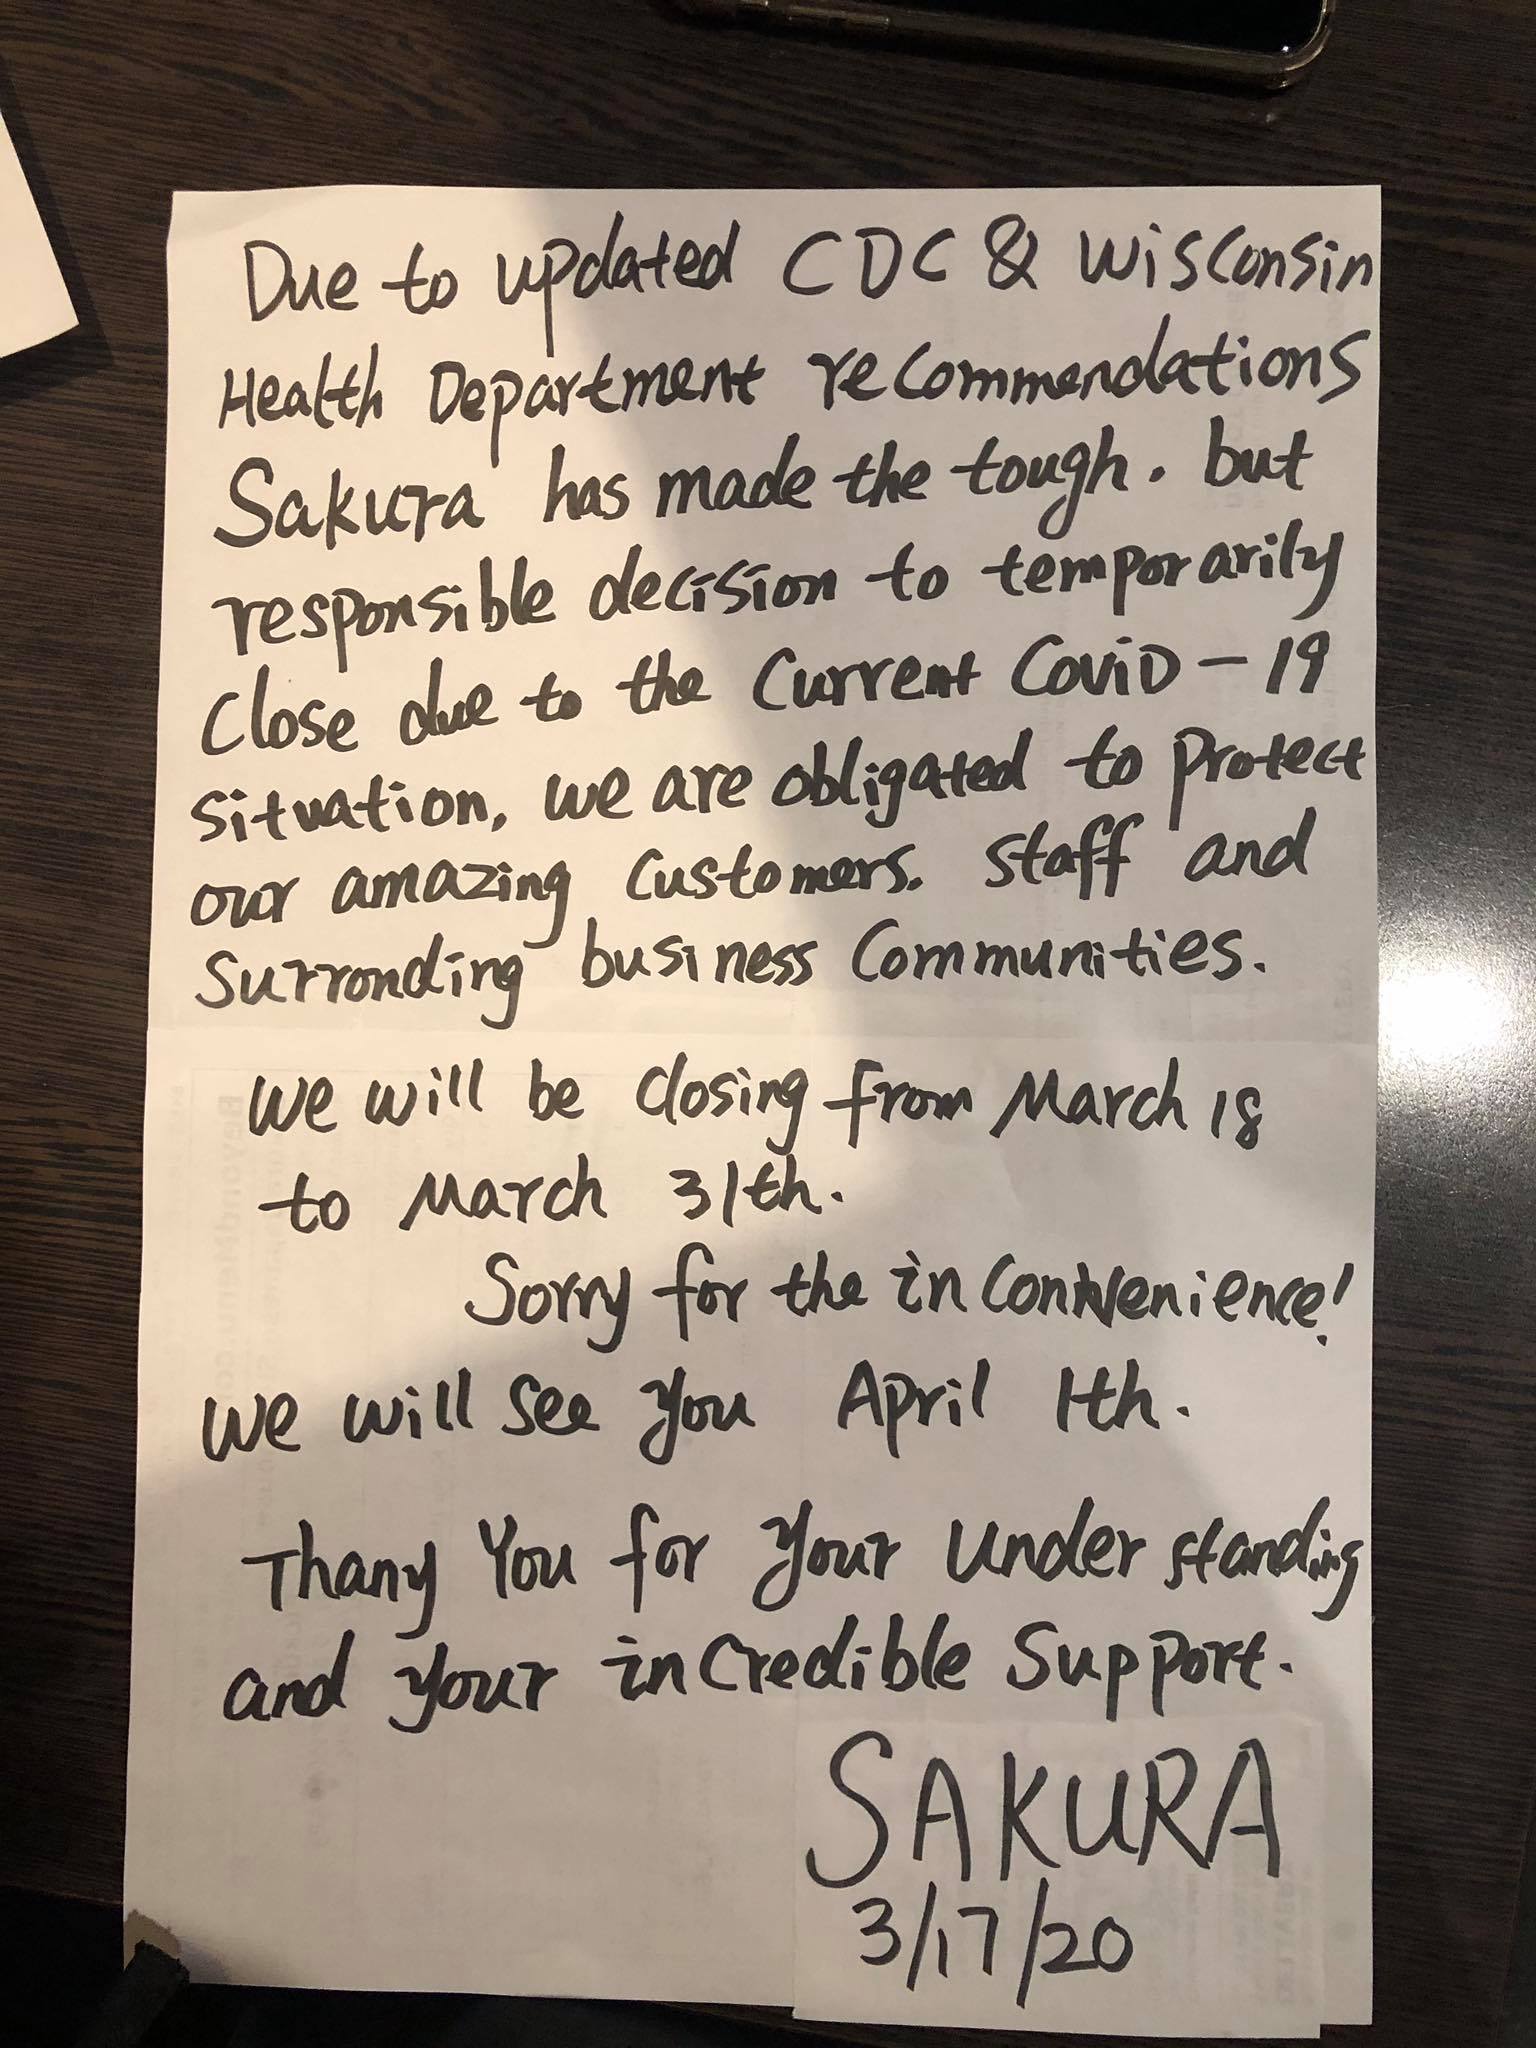 Due to updated CDC & Wisconsin
Health Department recommendations
Sakura has made the tough. but
responsible decision to temporarily
Close due to the Current Covid-19
situation, we are obligated to protect
our amazing Customers. Staff and
Surronding business Communities.
We will be closing from March 18
to March 31th.
Sorry for the inconvenience!
We will see you April 1th.
Thany You for your understanding
and your incredible Support.
SAKURA
3/17/20